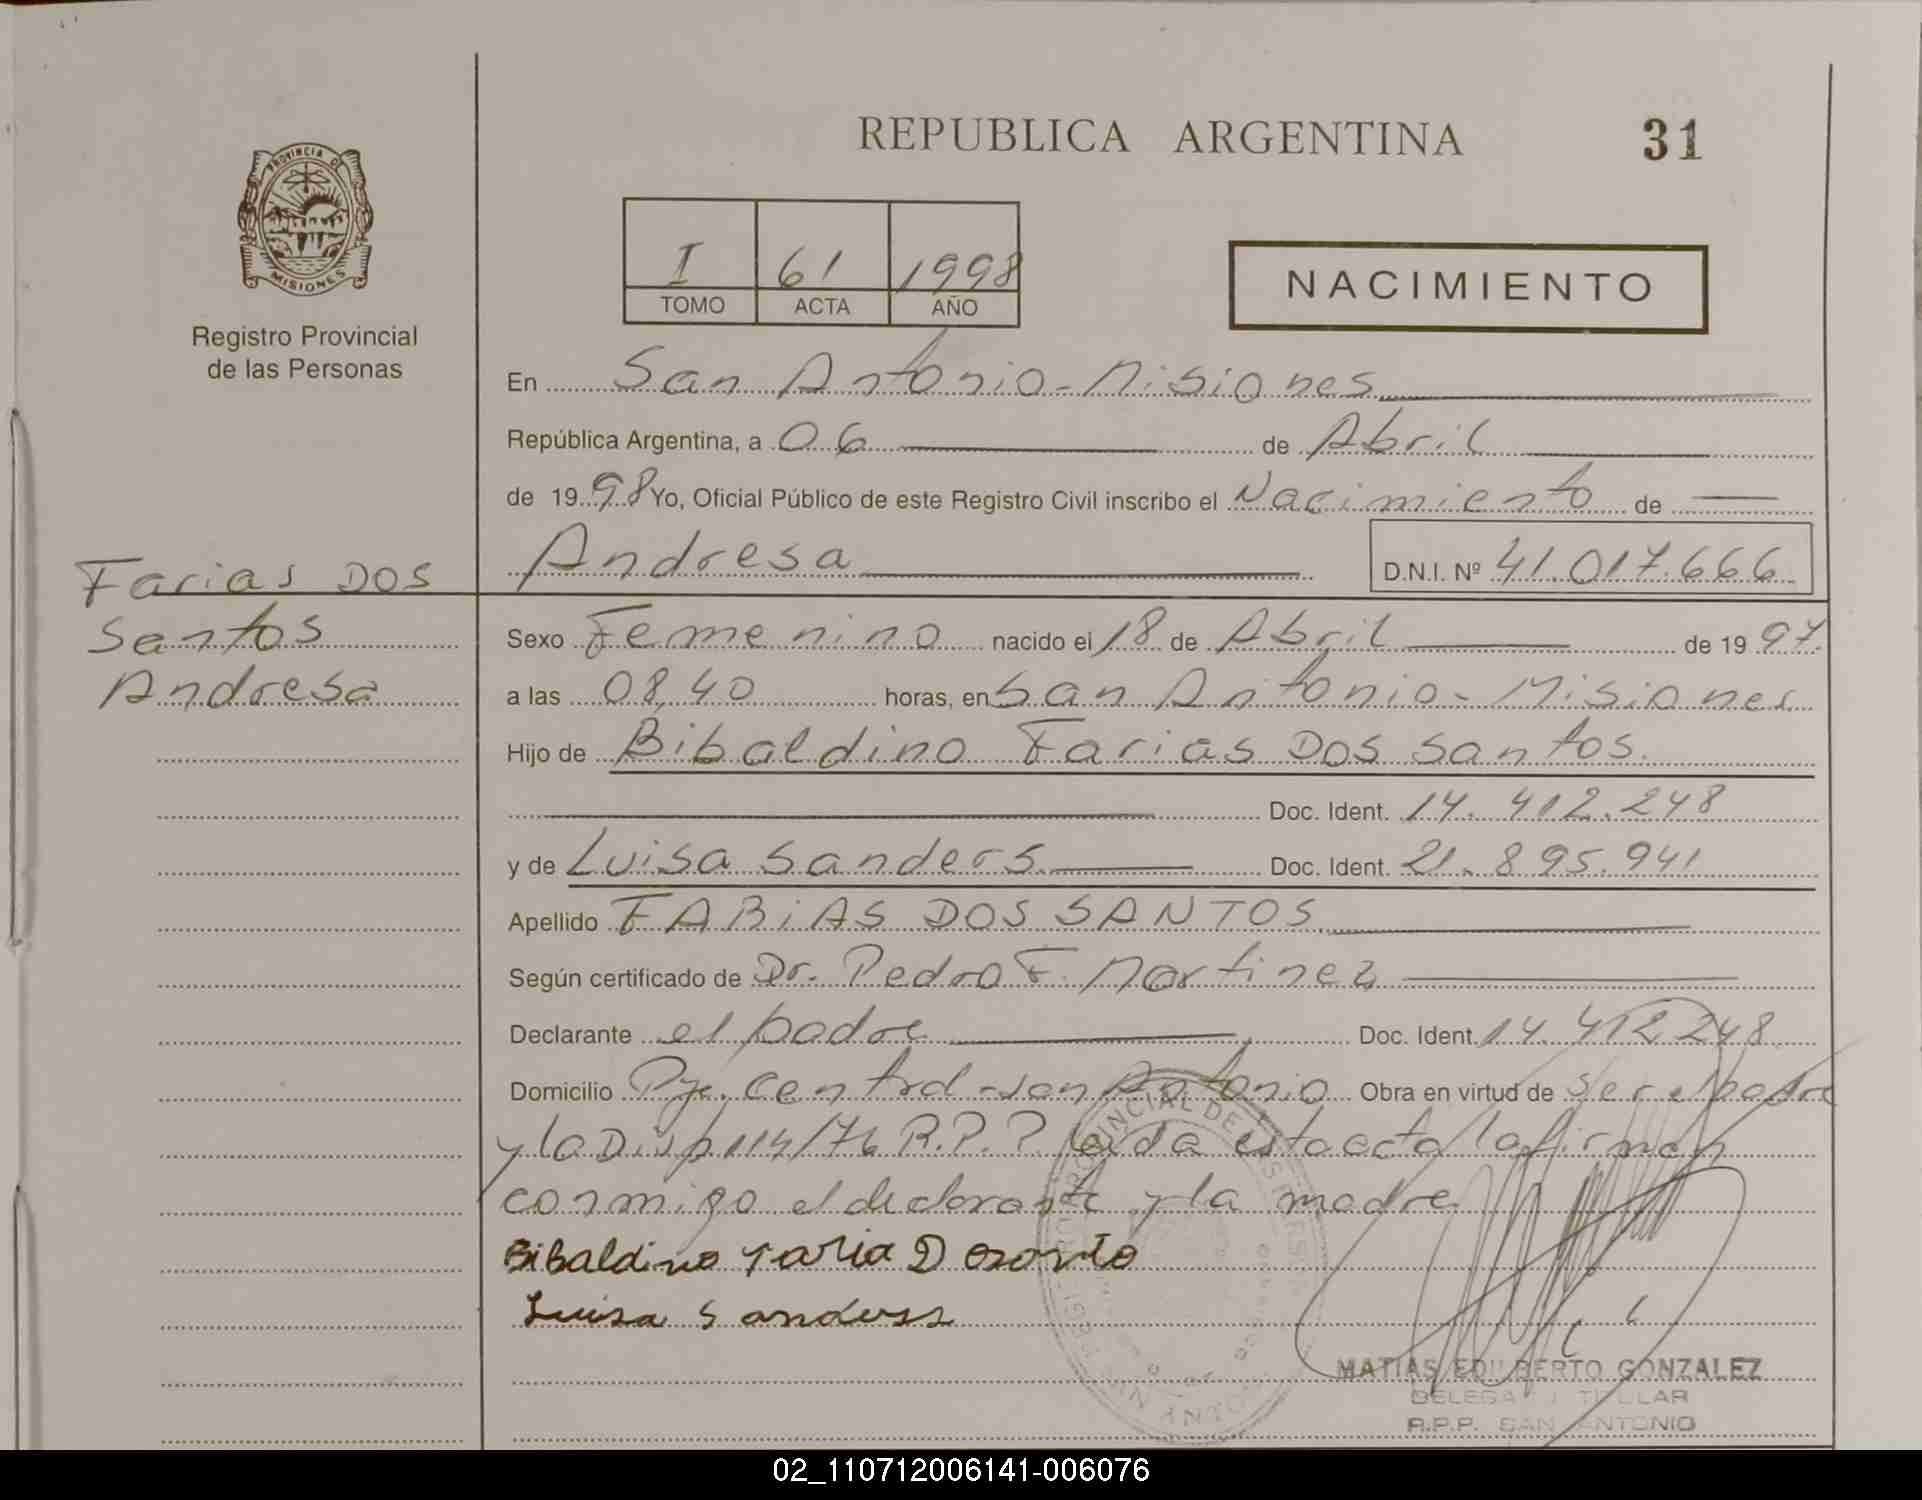 REPUBLICA ARGENTINA 31
PROVINCIA DE MISIONES
Registro Provincial
de las Personas
I 61 1998
TOMO ACTA AÑO
NACIMIENTO
En San Antonio - Misiones
República Argentina, a 06 de Abril
de 1998 Yo, Oficial Público de este Registro Civil inscribo el Nacimiento de
Andresa D.N.I. Nº 41.017.666
Farias DOS
Santos
Andresa
Sexo Femenino nacido el 18 de Abril de 1997.
a las 08,40 horas, en San Antonio - Misiones
Hijo de Bibaldino Farias Dos Santos.
Doc. Ident. 14.412.248
y de Luisa Sanders. Doc. Ident. 21.895.941
Apellido FARIAS DOS SANTOS.
Según certificado de Dr. Pedro F. Martinez
Declarante el padre Doc. Ident. 14.412.248
Domicilio Pje. Central - San Antonio Obra en virtud de ser el padre
y la Disp 114/76 R.P.P. leida esta acta la firman
conmigo el declarante y la madre
Bibaldino Faria D
Luisa Sanderss
MATIAS EDILBERTO GONZALEZ
DELEGADO TITULAR
R.P.P. SAN ANTONIO
02_110712006141-006076